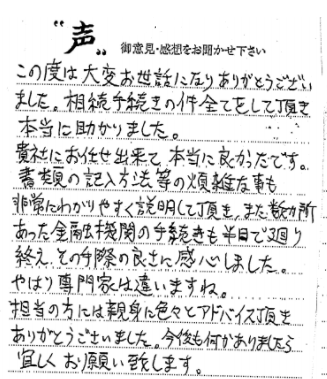 “声” 御意見・感想をお聞かせ下さい
この度は大変お世話になりありがとうござい
ました。相続手続きの件全てをして頂き
本当に助かりました。
貴社にお任せ出来て、本当に良かったです。
書類の記入方法等の煩雑な事も
非常にわかりやすく説明して頂き、また数カ所
あった金融機関の手続きも半日で3廻り
終え、その手際の良さに感心しました。
やはり専門家は違いますね。
担当の方には親身に色々とアドバイス頂き
ありがとうございました。今後も何かありましたら
宜しくお願い致します。